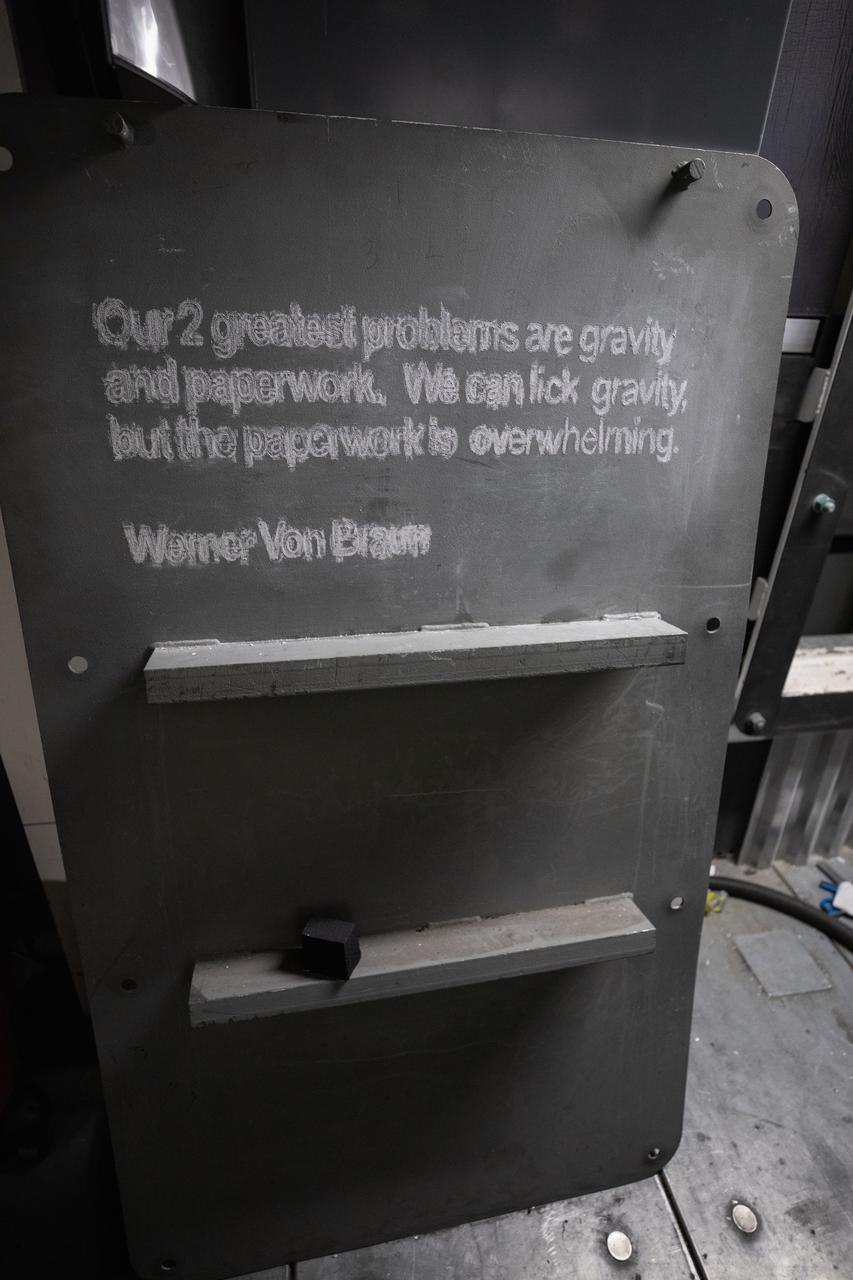 Our 2 greatest problems are gravity
and paperwork. We can lick gravity,
but the paperwork is overwhelming.
Werner Von Braun